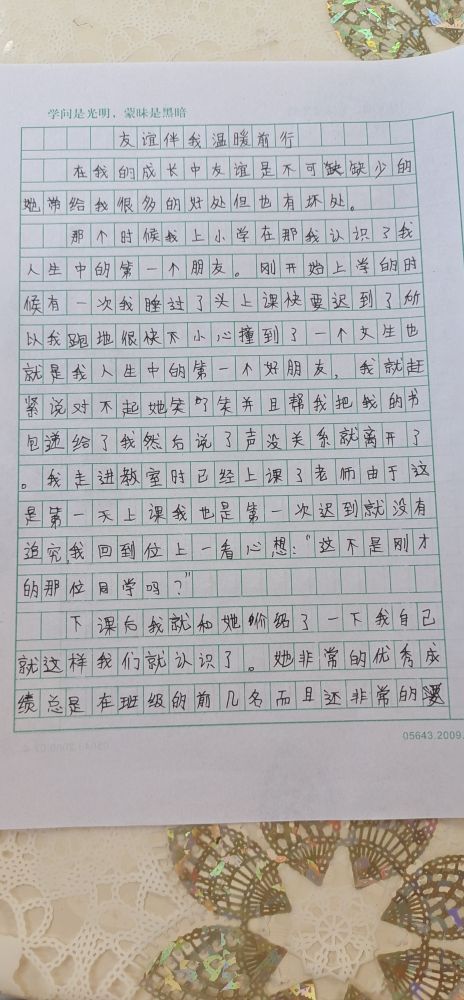 学问是光明，蒙昧是黑暗
友谊伴我温暖前行
在我的成长中友谊是不可缺缺少的
她带给我很多的好处但也有坏处。
那个时候我上小学在那我认识了我
人生中的第一个朋友。刚开始上学的时
候有一次我睡过了头上课快要迟到了所
以我跑地很快不小心撞到了一个女生也
就是我人生中的第一个好朋友，我就赶
紧说对不起她笑了笑并且帮我把我的书
包递给了我然后说了声没关系就离开了
。我走进教室时已经上课了老师由于这
是第一天上课我也是第一次迟到就没有
追究,我回到位上一看心想:“这不是刚才
的那位同学吗？”
下课后我就和她介绍了一下我自己
就这样我们就认识了。她非常的优秀成
绩总是在班级的前几名而且还非常的
05643.2009.